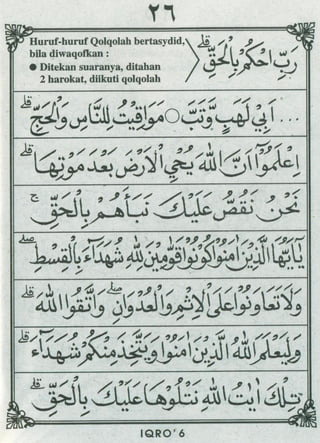 ٢٦
Huruf-huruf Qolqolah bertasydid,
bila diwaqofkan :
● Ditekan suaranya, ditahan
2 harokat, diikuti qolqolah
رَبِّ احْكُمْ بِالْحَقِّ ۗ
... أَبِيْ لَهَبٍ وَّتَبَّ ○ مَوَاقِيْتُ لِلنَّاسِ وَالْحَجِّ ۗ
اِعْلَمُوْٓا اَنَّ اللّٰهَ يُحْيِ الْاَرْضَ بَعْدَ مَوْتِهَا ۗ
نَحْنُ نَقُصُّ عَلَيْكَ نَبَاَهُمْ بِالْحَقِّ ۚ
يٰٓاَيُّهَا الَّذِيْنَ اٰمَنُوْا كُوْنُوْا قَوَّامِيْنَ لِلّٰهِ شُهَدَاۤءَ بِالْقِسْطِ ۖ
وَلَا تَعَاوَنُوْا عَلَى الْاِثْمِ وَالْعُدْوَانِ ۖ وَاتَّقُوا اللّٰهَ ۗ
وَلِيَعْلَمَ اللّٰهُ الَّذِيْنَ اٰمَنُوْا وَيَتَّخِذَ مِنْكُمْ شُهَدَاۤءَ ۗ
تِلْكَ اٰيٰتُ اللّٰهِ نَتْلُوْهَا عَلَيْكَ بِالْحَقِّ ۗ
IQRO' 6